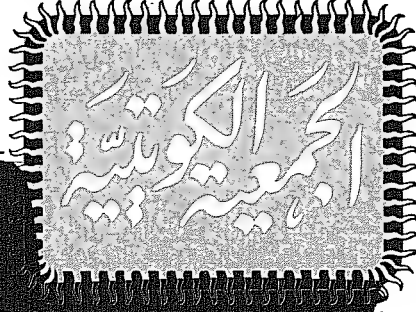 الجمعية الكويتية